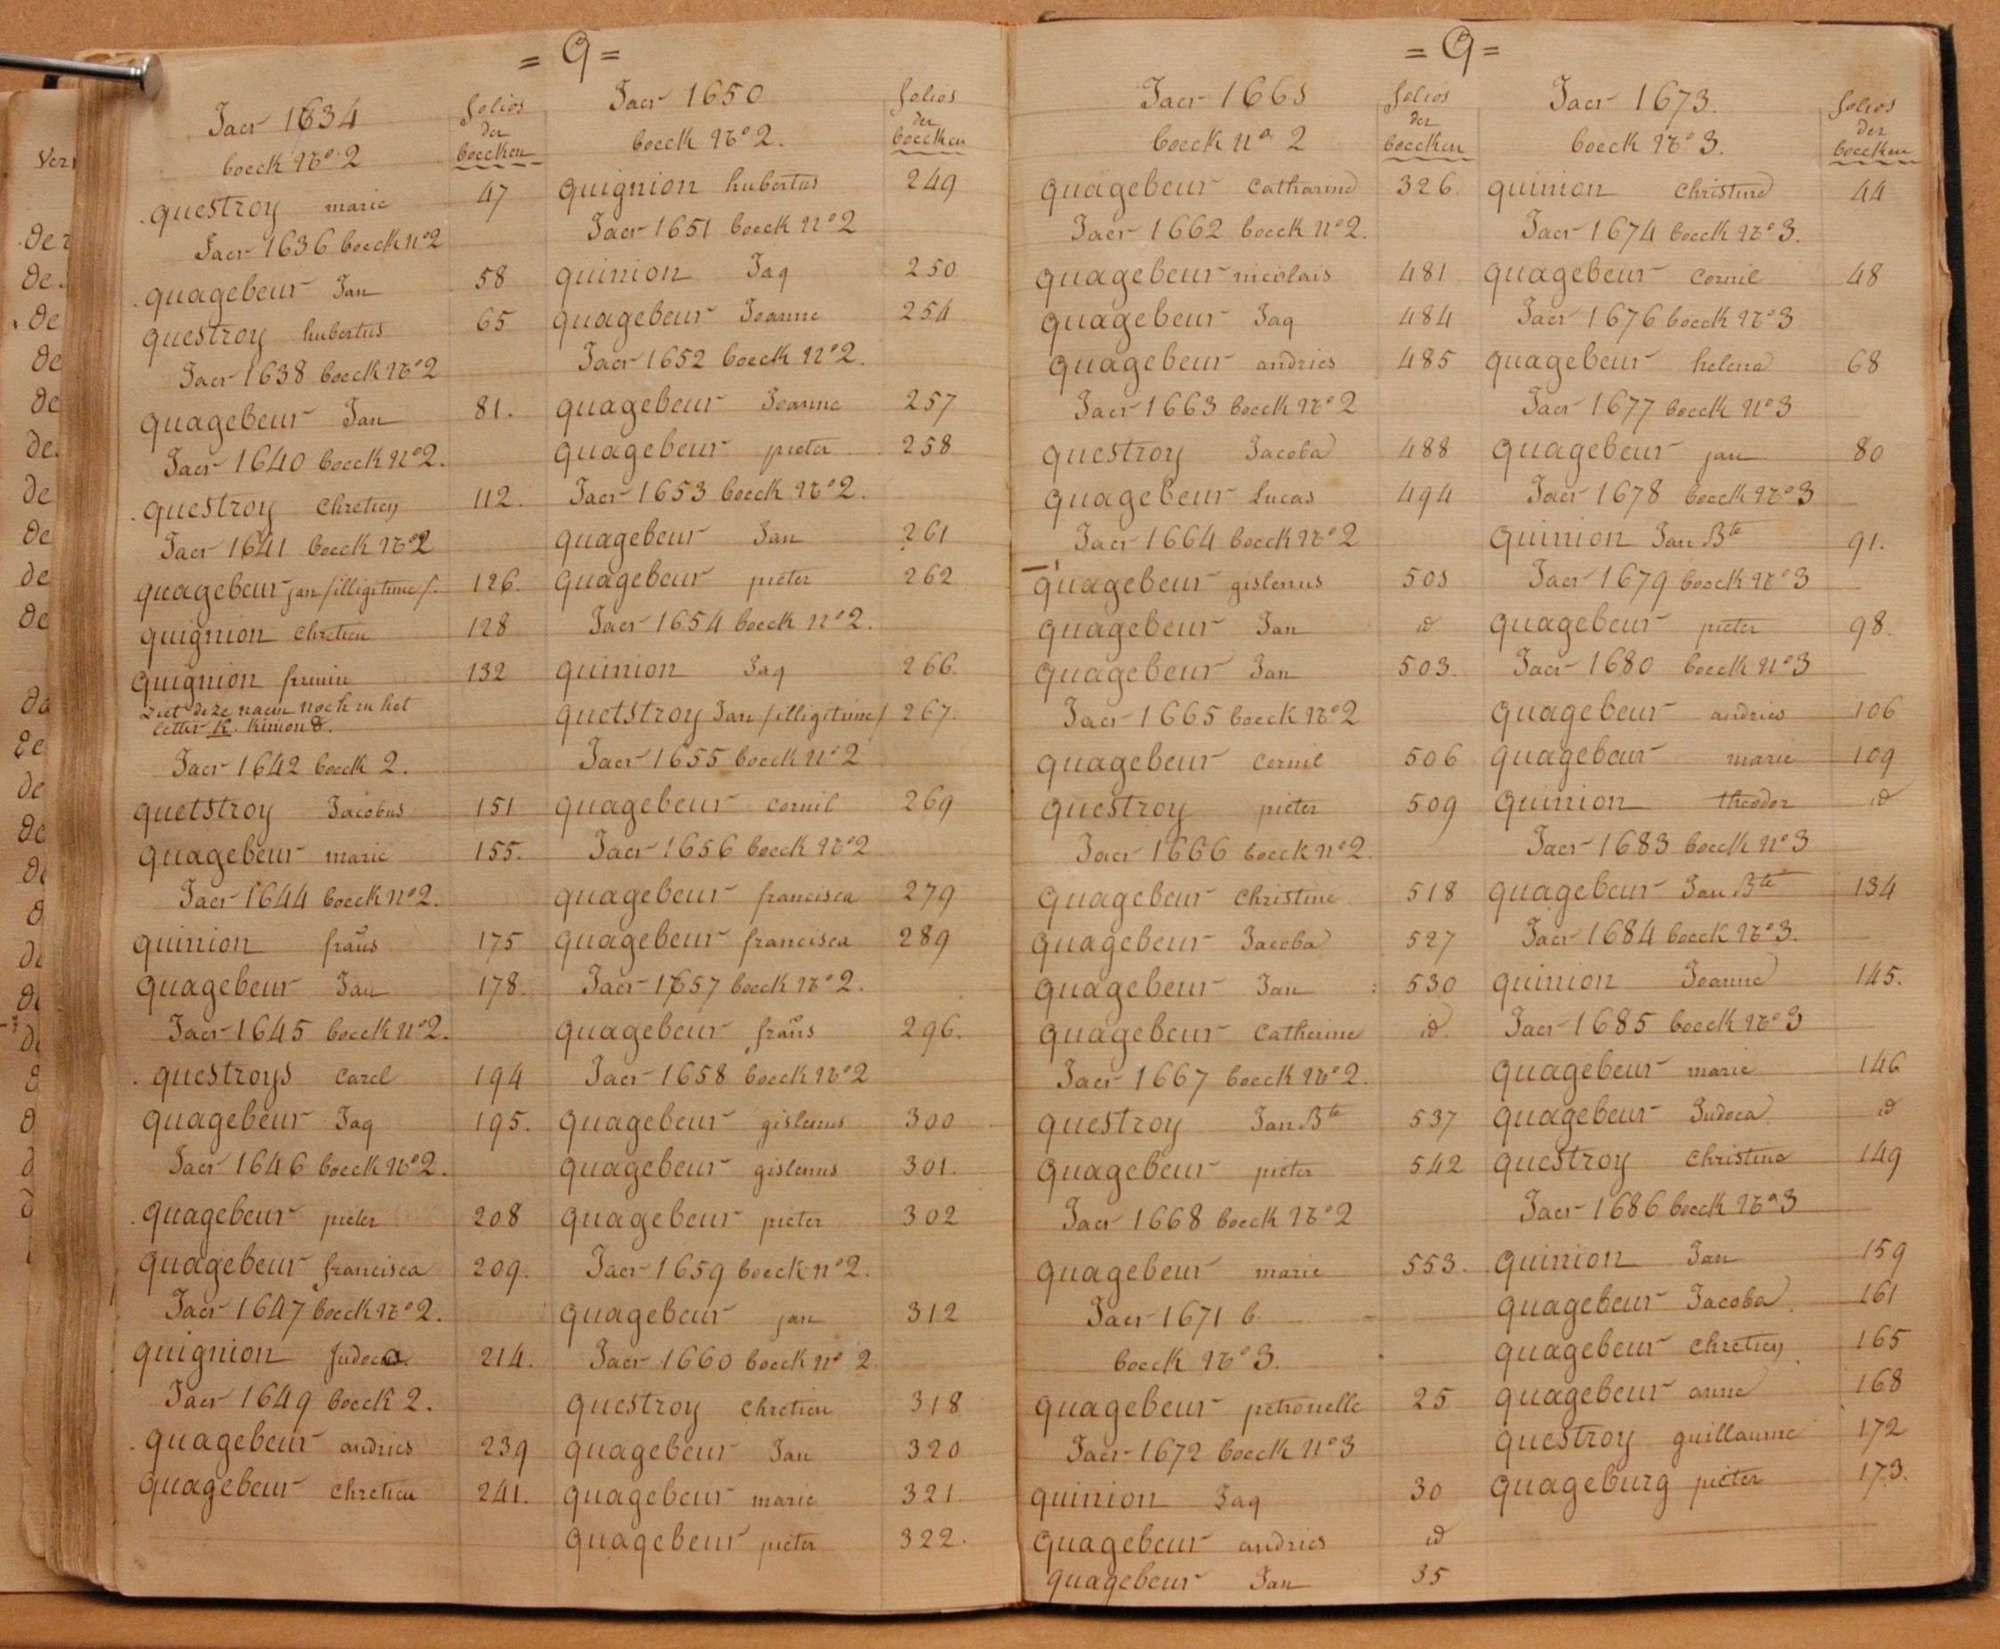 = Q =
Jaer 1634
folios
der
boecken
boeck No 2
questroy marie 47
Jaer 1636 boeck No 2
quagebeur Jan 58
questroy hubertus 65
Jaer 1638 boeck No 2
quagebeur Jan 81.
Jaer 1640 boeck No 2.
questroy chretien 112.
Jaer 1641 boeck No 2
quagebeur jan /illigitime/. 126.
quignion chretien 128
quignion firmin 132
ziet deze naem noch in het
letter K. kinion &.
Jaer 1642 boeck 2.
quetstroy Jacobus 151
quagebeur marie 155.
Jaer 1644 boeck No 2.
quinion frans 175
quagebeur Jan 178.
Jaer 1645 boeck No 2.
questroys carel 194
quagebeur Jaq 195.
Jaer 1646 boeck No 2.
quagebeur pieter 208
quagebeur francisca 209.
Jaer 1647 boeck No 2.
quignion Judoca 214.
Jaer 1649 boeck 2.
quagebeur andries 239
quagebeur chretien 241.
Jaer 1650
folios
der
boecken
boeck No 2.
quignion hubertus 249
Jaer 1651 boeck No 2
quinion Jaq 250
quagebeur Joanne 254
Jaer 1652 boeck No 2.
quagebeur Joanne 257
quagebeur pieter 258
Jaer 1653 boeck No 2.
quagebeur Jan 261
quagebeur pieter 262
Jaer 1654 boeck No 2.
quinion Jaq 266.
quetstroy Jan /illigitime/ 267
Jaer 1655 boeck No 2
quagebeur cornil 269
Jaer 1656 boeck No 2
quagebeur francisca 279
quagebeur francisca 289
Jaer 1657 boeck No 2.
quagebeur frans 296.
Jaer 1658 boeck No 2
quagebeur gislenus 300
quagebeur gislenus 301.
quagebeur pieter 302
Jaer 1659 boeck No 2.
quagebeur jan 312
Jaer 1660 boeck No 2
questroy chretien 318
quagebeur Jan 320
quagebeur marie 321.
quagebeur pieter 322.
= Q =
Jaer 1661
folios
der
boecken
boeck No 2
quagebeur catharine 326.
Jaer 1662 boeck No 2.
quagebeur nicolais 481
quagebeur Jaq 484
quagebeur andries 485
Jaer 1663 boeck No 2
questroy Jacoba 488
quagebeur Lucas 494
Jaer 1664 boeck No 2
quagebeur gislenus 501
quagebeur Jan id
quagebeur Jan 503.
Jaer 1665 boeck No 2
quagebeur cornil 506
questroy pieter 509
Jaer 1666 boeck No 2.
quagebeur christine 518
quagebeur Jacoba 527
quagebeur Jan 530
quagebeur catherine id.
Jaer 1667 boeck No 2.
questroy Jan Bte 537
quagebeur pieter 542
Jaer 1668 boeck No 2
quagebeur marie 553.
Jaer 1671 b
boeck No 3.
quagebeur petronelle 25
Jaer 1672 boeck No 3
quinion Jaq 30
quagebeur andries id
quagebeur Jan 35
Jaer 1673.
folios
der
boecken
boeck No 3.
quinion christine 44
Jaer 1674 boeck No 3.
quagebeur cornil 48
Jaer 1676 boeck No 3
quagebeur helena 68
Jaer 1677 boeck No 3
quagebeur jan 80
Jaer 1678 boeck No 3
quinion Jan Bte 91.
Jaer 1679 boeck No 3
quagebeur pieter 98.
Jaer 1680 boeck No 3
quagebeur andries 106
quagebeur marie 109
quinion theodor id
Jaer 1683 boeck No 3
quagebeur Jan Bte 134
Jaer 1684 boeck No 3.
quinion Joanne 145.
Jaer 1685 boeck No 3
quagebeur marie 146
quagebeur Judoca id
questroy christine 149
Jaer 1686 boeck No 3
quinion Jan 159
quagebeur Jacoba 161
quagebeur chretien 165
quagebeur anne 168
questroy guillaume 172
quageburg pieter 173.